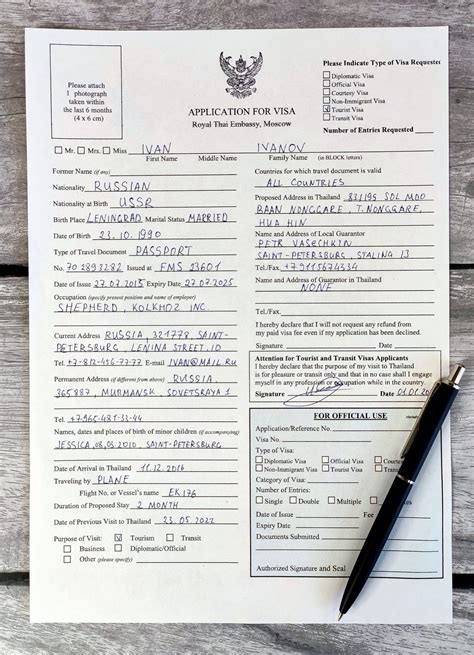 Please attach
1 photograph
taken within
the last 6 months
(4 x 6 cm)
APPLICATION FOR VISA
Royal Thai Embassy, Moscow
Please Indicate Type of Visa Requested
Diplomatic Visa
Official Visa
Courtesy Visa
Non-Immigrant Visa
Tourist Visa
Transit Visa
Number of Entries Requested
Mr. Mrs. Miss IVAN IVANOV
First Name Middle Name Family Name (in BLOCK letters)
Former Name (if any)
Nationality RUSSIAN
Nationality at Birth USSR
Birth Place LENINGRAD Marital Status MARRIED
Date of Birth 23.10.1990
Type of Travel Document PASSPORT
No. 70 2893282 Issued at FMS 23601
Date of Issue 27.07.2015 Expiry Date 27.07.2025
Occupation (specify present position and name of employer)
SHEPHERD, KOLKHOZ INC.
Current Address RUSSIA, 321778, SAINT-
PETERSBURG, LENINA STREET, 10
Tel. +7-812-456-77-77 E-mail IVAN@MAIL.RU
Permanent Address (if different from above) RUSSIA,
365887, MURMANSK, SOVETSRAYA 1
Tel. +7-965-487-33-44
Names, dates and places of birth of minor children (if accompanying)
JESSICA, 08.09.2010, SAINT-PETERSBURG
Date of Arrival in Thailand 11.12.2016
Traveling by PLANE
Flight No. or Vessel's name EK 176
Duration of Proposed Stay 2 MONTH
Date of Previous Visit to Thailand 23.05.2022
Purpose of Visit: Tourism Transit
Business Diplomatic/Official
Other (please specify)
Countries for which travel document is valid
ALL COUNTRIES
Proposed Address in Thailand 83/195 SOL MOO
BAAN NONGGARE, T. NONGGARE,
HUA HIN
Name and Address of Local Guarantor
PETR VASECHKIN
SAINT-PETERSBURG, STALINA 13
Tel./Fax. +79115674334
Name and Address of Guarantor in Thailand
NONE
Tel./Fax.
I hereby declare that I will not request any refund from my
paid visa fee even if my application has been declined.
Signature Date
Attention for Tourist and Transit Visas Applicants
I hereby declare that the purpose of my visit to Thailand
is for pleasure or transit only and that in no case shall I engage
myself in any profession or occupation while in the country.
Signature Date 01.01.20
FOR OFFICIAL USE
Application/Reference No.
Visa No.
Type of Visa:
Diplomatic Visa Official Visa
Non-Immigrant Visa Tourist Visa
Category of Visa:
Number of Entries:
Single Double Multiple
Date of Issue
Expiry Date
Documents Submitted
Authorized Signature and Seal